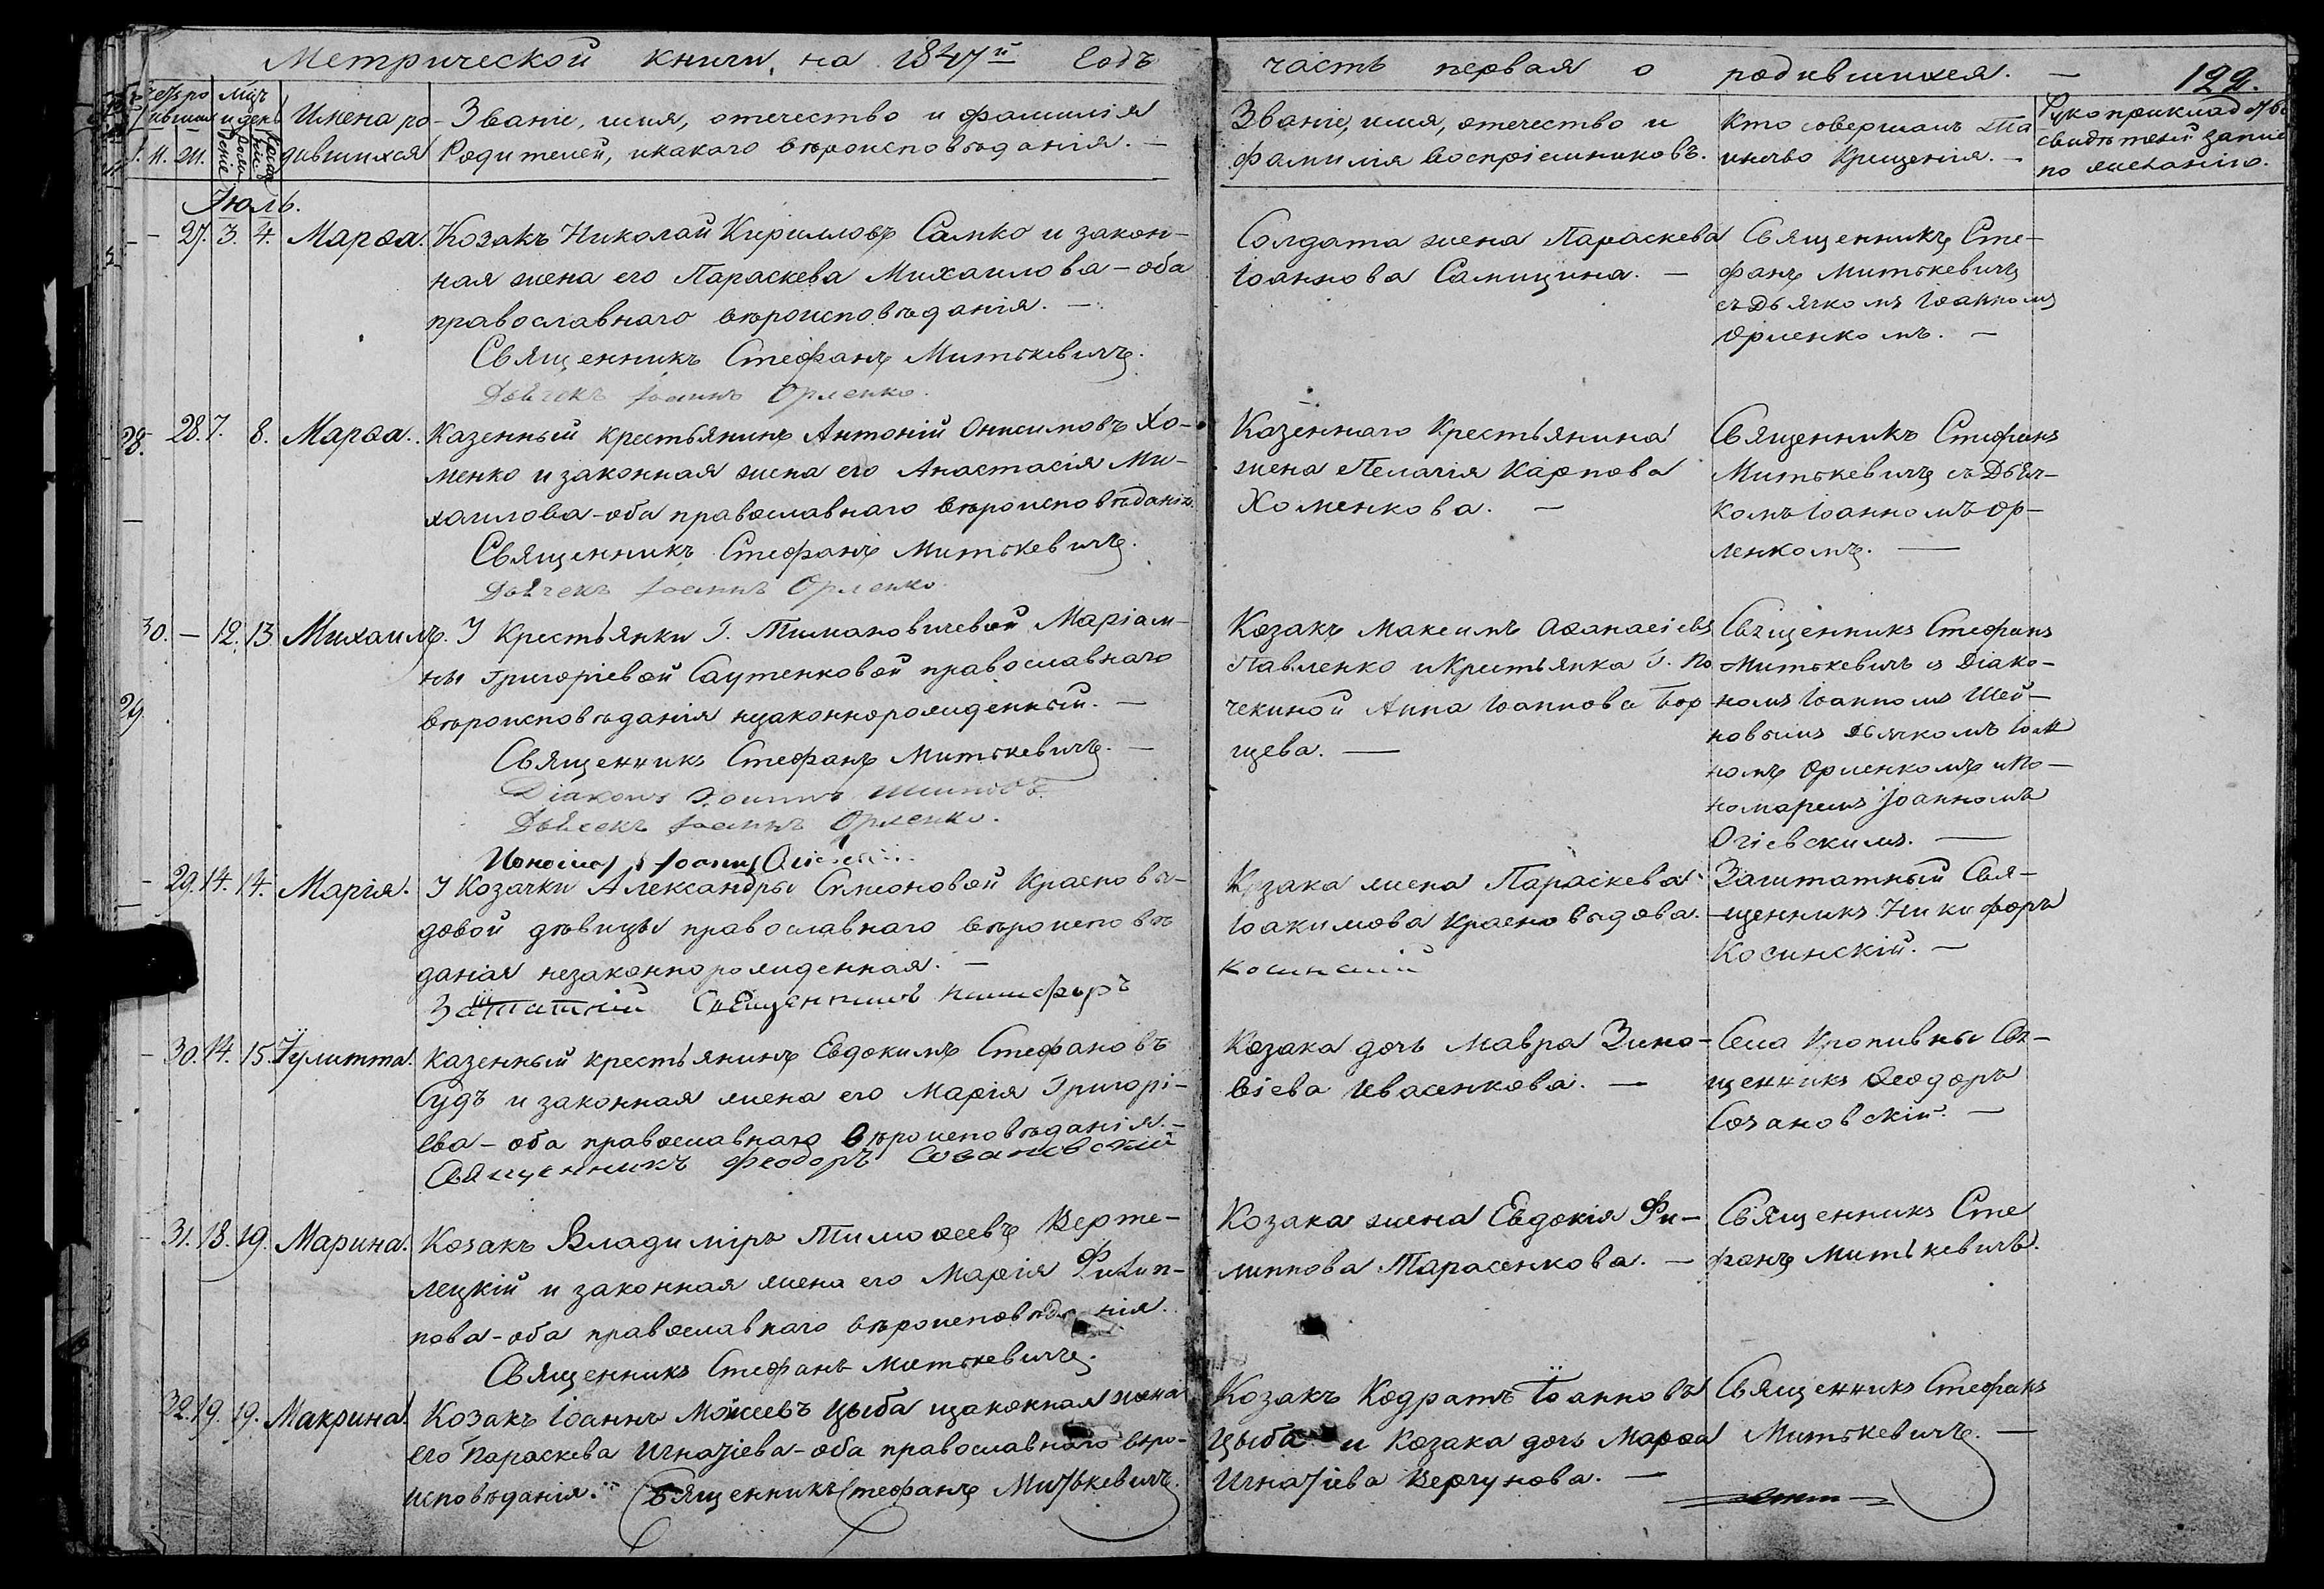 Метрической книги, на 1847й годъ
часть первая о родившихся. —
122.
Имена ро-
дившихся
Званіе, имя, отечество и фамилія
Родителей, и какаго вѣроисповѣданія. —
Званіе, имя, отечество и
фамилія воспріемниковъ.
Кто совершалъ Та
инство Крещенія. —
Рукоприклад
свидѣтелей
по желанію.
Іюль.
27. 3. 4. Марѳа. Козакъ Николай Кирилловъ Самко и закон-
ная жена его Параскева Михаилова – оба
православнаго вѣроисповѣданія. —
Священникъ Стефанъ Митькевичъ.
Дьячекъ Іоаннъ Орленко.
Солдата жена Параскева
Іоаннова Самцина. —
Священникъ Сте-
фанъ Митькевичъ
съ Дьячкомъ Іоанномъ
Орленкомъ. —
28. 28. 7. 8. Марѳа. Казенный крестьянинъ Антоній Онисимовъ Хо-
менко и законная жена его Анастасія Ми-
хаилова – оба православнаго вѣроисповѣданія.
Священникъ Стефанъ Митькевичъ.
Дьячекъ Іоаннъ Орленко
Казеннаго Крестьянина
жена Пелагія Карпова
Хоменкова. —
Священникъ Стефанъ
Митькевичъ съ Дьяч-
комъ Іоанномъ Ор-
ленкомъ. —
30. — 12. 13. Михаилъ. У Крестьянки Г. Тимановичевой Маріам-
ны Григоріевой Саутенковой православнаго
вѣроисповѣданія незаконнорожденный. —
29.
Священникъ Стефанъ Митькевичъ. —
Діаконъ Іоаннъ
Дьячекъ Іоаннъ Орленко.
Іоаннъ
Козакъ Максимъ Аѳанасіевъ
Павленко и Крестьянка Г. По
чекиной Анна Іоаннова Бор
щева. —
Священникъ Стефанъ
Митькевичъ съ Діако-
номъ Іоанномъ Шей-
новымъ Дьячкомъ Іоан
номъ Орленкомъ и По-
номаремъ Іоанномъ
Огіевскимъ. —
29. 14. 14. Марія. У Козачки Александры Симоновой Красновы-
довой дѣвицы православнаго вѣроисповѣ
данія незаконнорожденная. —
Заштатній Священникъ Никифоръ
Козака жена Параскева
Іоакимова Красновыдова. —
Косинскій
Заштатный Свя-
щенникъ Никифоръ
Косинскій. —
30. 14. 15. Іулитта. Казенный крестьянинъ Евдокимъ Стефановъ
Судъ и законная жена его Марія Григорі-
ева – оба православнаго вѣроисповѣданія. —
Священникъ Феодоръ Созановскій
Козака дочь Мавра Зино-
віева Ивасенкова. —
Села Кропивны Свя-
щенникъ Ѳеодоръ
Созановскій. —
31. 18. 19. Марина. Козакъ Владиміръ Тимоѳеевъ Верте-
лецкій и законная жена его Марія Филип-
пова – оба православнаго вѣроисповѣданія.
Священникъ Стефанъ Митькевичъ.
Козака жена Евдокія Фи-
липпова Тарасенкова. —
Священникъ Сте
фанъ Митькевичъ.
32. 19. 19. Макрина. Козакъ Іоаннъ Моисеевъ Цыба и законная жена
его Параскева Игнатіева – оба православнаго вѣро-
исповѣданія. Священникъ Стефанъ Митькевичъ.
Козакъ Кодратъ Іоанновъ
Цыба и Козака дочь Марѳа
Игнатіева Вергунова. —
Священникъ Стефанъ
Митькевичъ. —